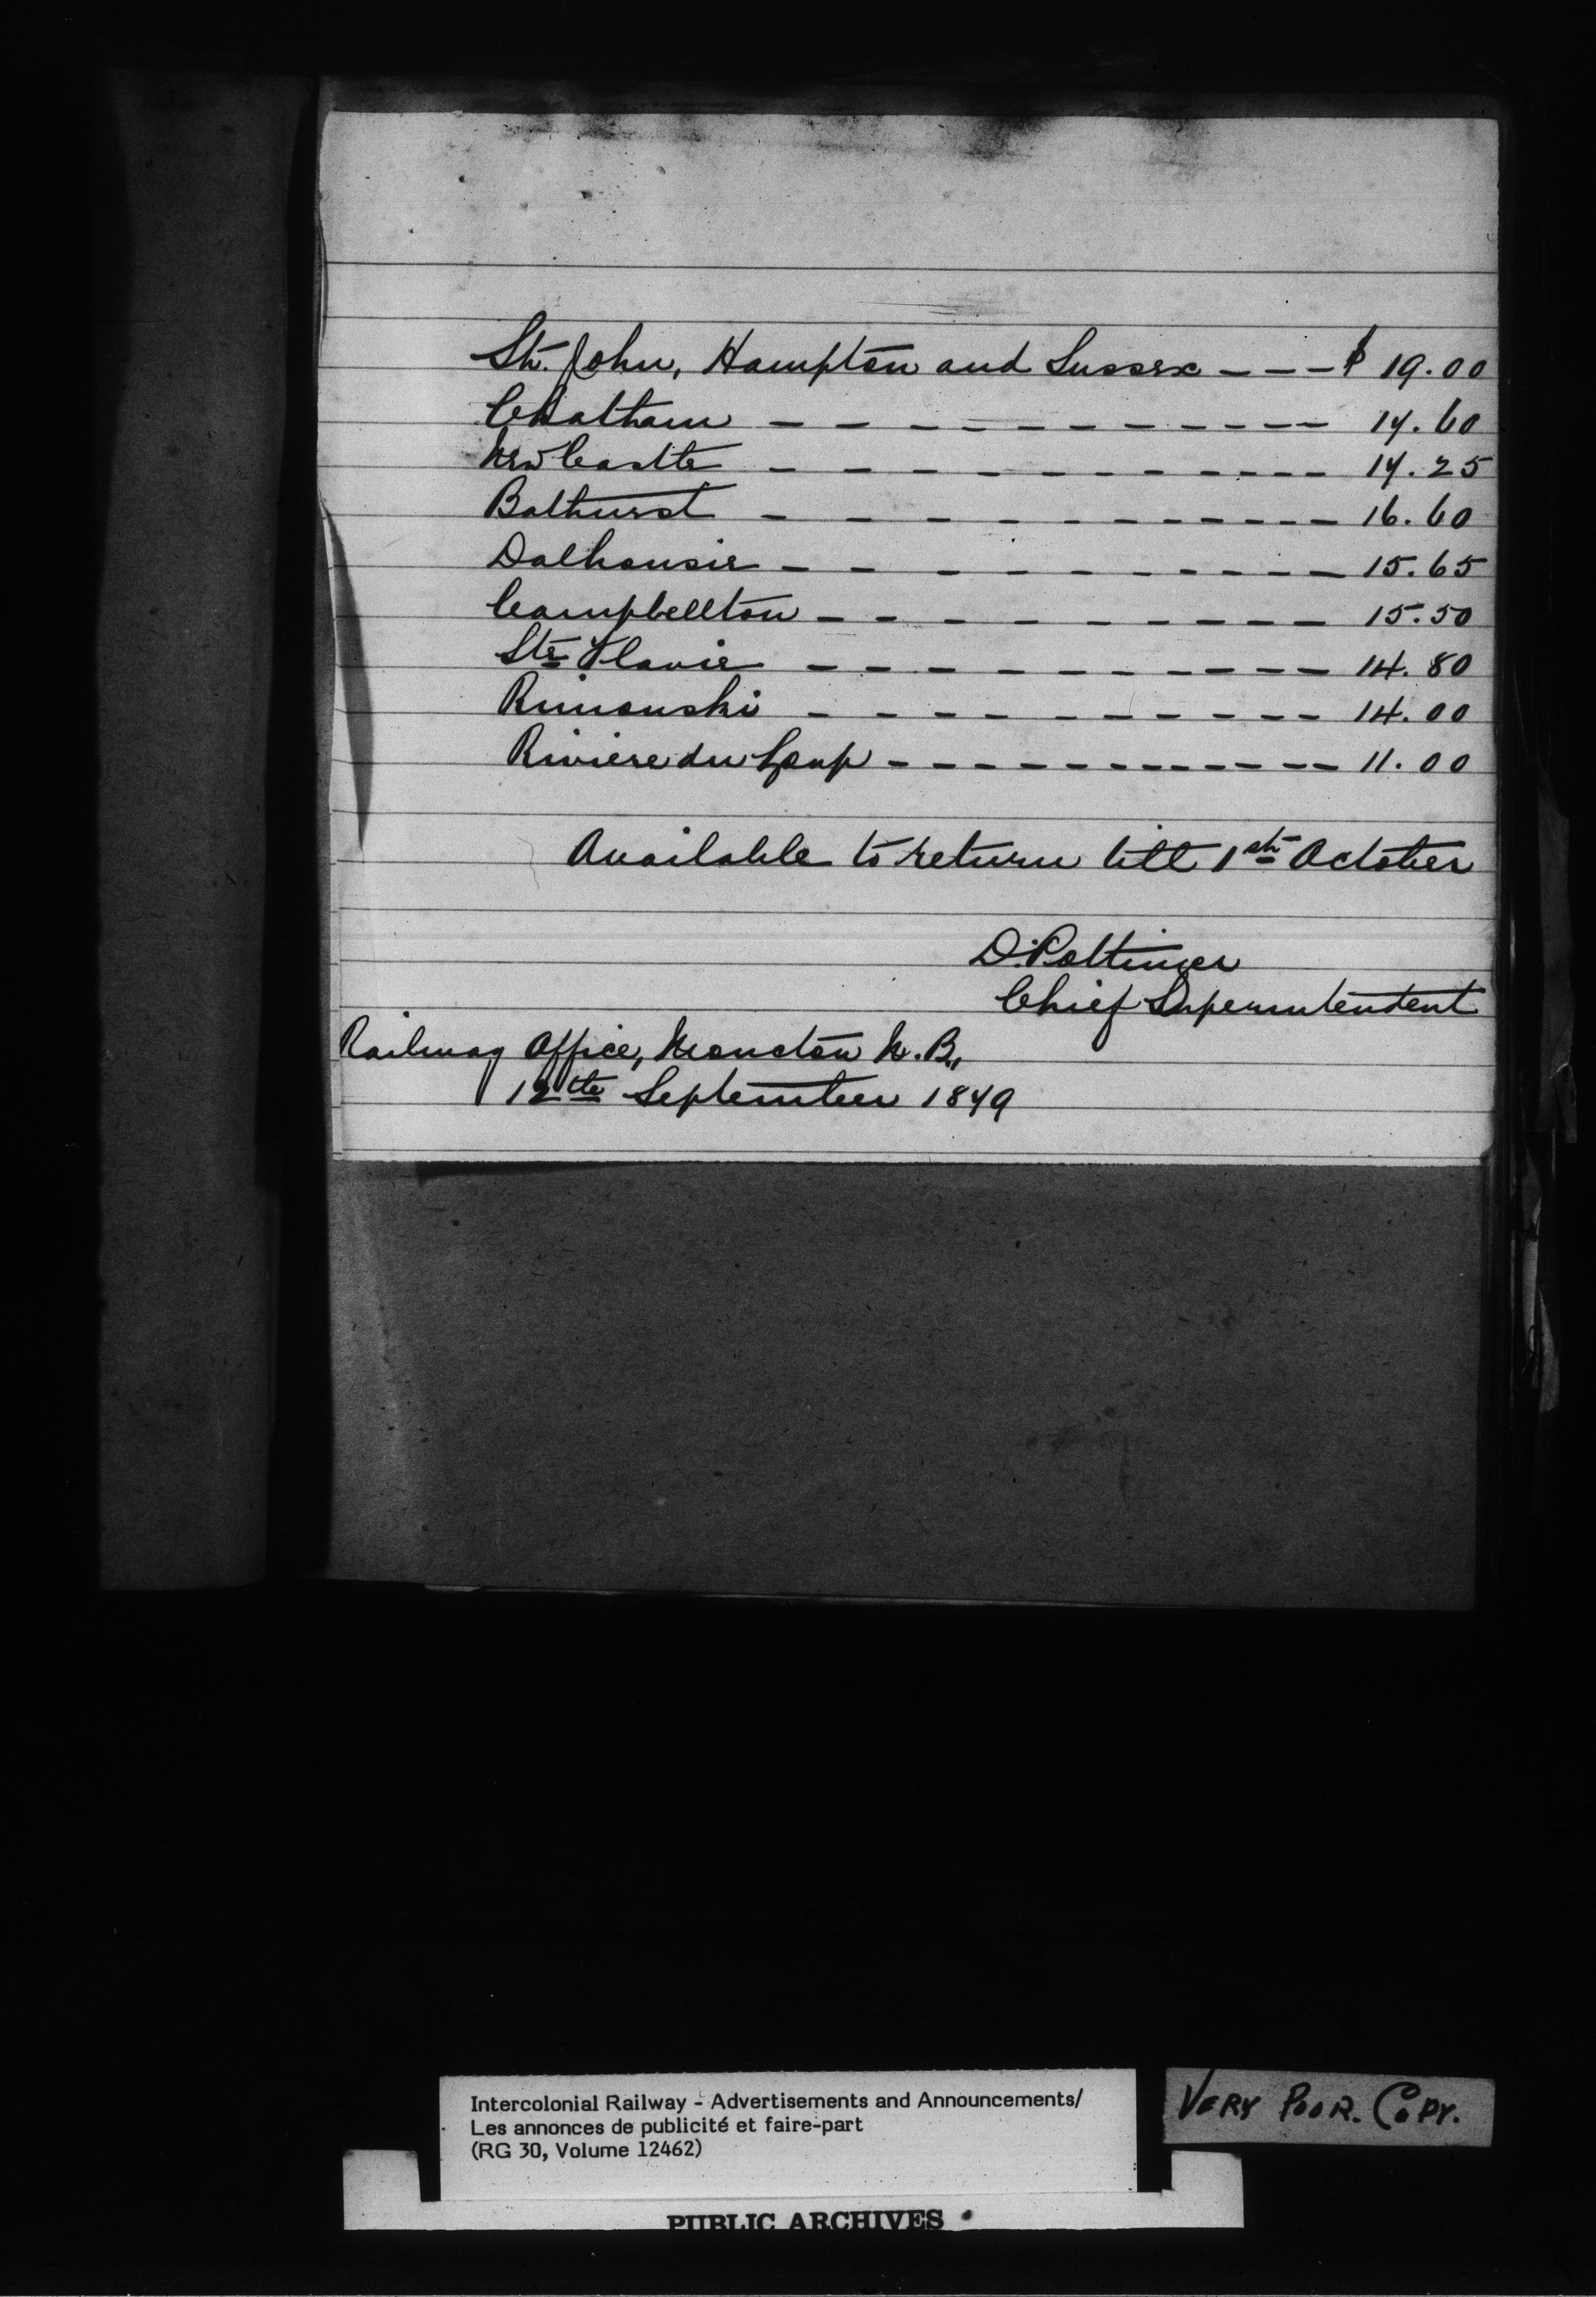 St. John, Hampton and Sussex - - - $ 19.00
Chatham - - - - - - - - - - - - 17.60
New Castle - - - - - - - - - - - - 17.25
Bathurst - - - - - - - - - - - - 16.60
Dalhousie - - - - - - - - - - - 15.65
Campbellton - - - - - - - - - - - 15.50
Ste Flavie - - - - - - - - - - - 14.80
Rimouski - - - - - - - - - - - 14.00
Riviere du Loup - - - - - - - - - - - - - 11.00
Available to return till 1st October
D. Pottinger
Chief Superintendent
Railway Office, Moncton N.B.,
12th September 1879
Intercolonial Railway - Advertisements and Announcements/
Les annonces de publicité et faire-part
(RG 30, Volume 12462)
VERY POOR. COPY.
PUBLIC ARCHIVES